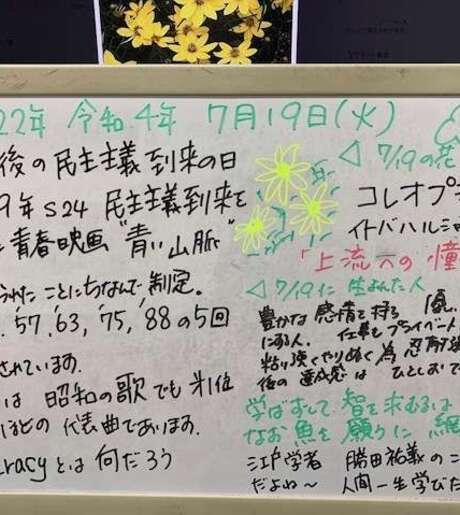 22年 令和.4年 7月19日(火)
後の民主主義到来の日
9年 S24 民主主義到来を
青春映画"青い山脈"
られたことにちなんで制定。
. 57, 63, '75, '88の5回
されています。
は 昭和の歌でも半位
ほどの 代表曲であります.
cracyとは何だろう
◁ 7/19の花
コレオプ
イトバハルシャ
「上流への憧
◁7/19に生まれた人
豊かな 感情を持る 優し
にする人. 仕事もプライベート
粘り強くやりぬく為 忍耐
後の 達成感は ひとしおで
学ばずして.智を求むるは
なお魚を 願うに 網
江戸学者 勝田祐義の
だよね～ 人間一生学びた